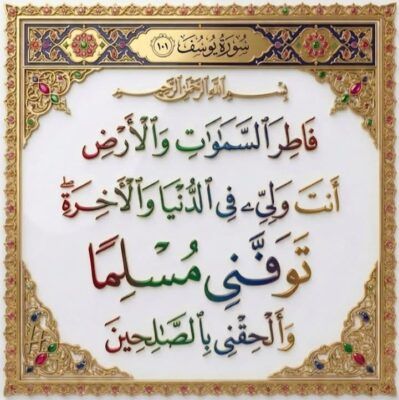 سُورَةُ يُوسُفَ ١٠١
بِسْمِ اللَّهِ الرَّحْمَٰنِ الرَّحِيمِ
فَاطِرَ ٱلسَّمَٰوَٰتِ وَٱلْأَرْضِ
أَنتَ وَلِيِّۦ فِي ٱلدُّنْيَا وَٱلْأَخِرَةِۖ
تَوَفَّنِي مُسْلِمًا
وَأَلْحِقْنِي بِٱلصَّٰلِحِينَ